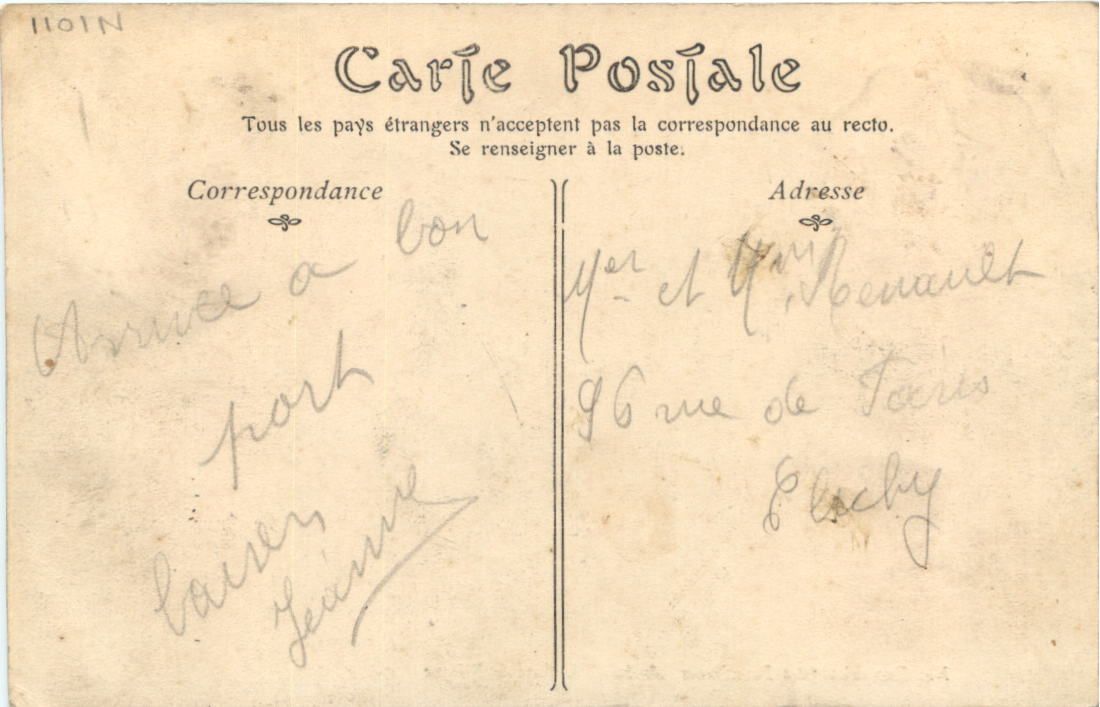 1101N
Carte Postale
Tous les pays étrangers n'acceptent pas la correspondance au recto.
Se renseigner à la poste.
Correspondance
Arrivée a bon
port
baisers
Jeanne
Adresse
Mer et Mme Renault
96 rue de Paris
Clichy